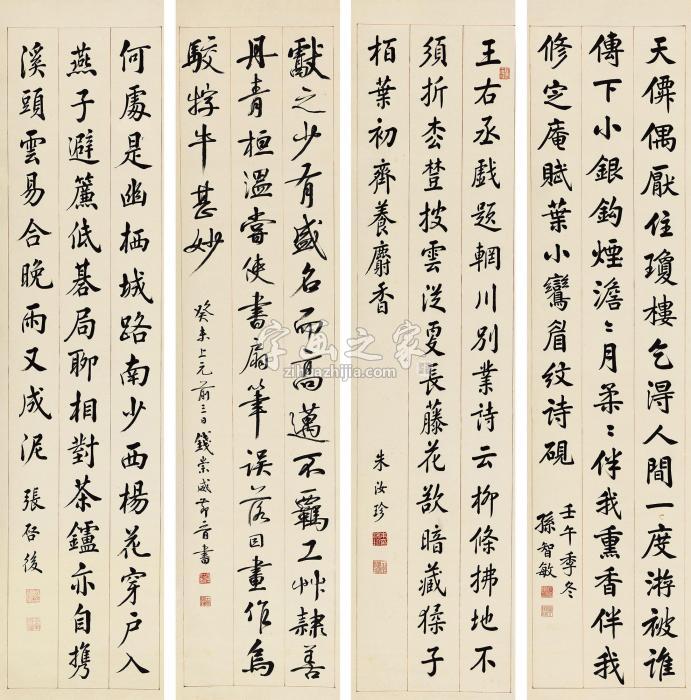 天僲偶厭住瓊樓乞淂人間一度游被誰
傳下小銀鈎煙澹〻月柔〻伴我熏香伴我
修定庵賦葉小鸞眉紋詩硯
壬午季冬
孫智敏
王右丞戲題輞川別業詩云柳條拂地不
須折松樹披雲従更長藤花欲暗藏猱子
栢葉初齊養麝香
朱汝珍
獻之少有盛名而高邁不羈工艸隷善
丹青桓溫嘗使書扇筆誤落因畫作烏
駮牸牛甚妙
癸未上元前三日錢崇威節音書
何處是幽栖城路南少西楊花穿户入
燕子避簾低碁局聊相對茶鑪亦自携
溪頭雲易合晚雨又成泥
張啓後
字画之家
zihuazhijia.com